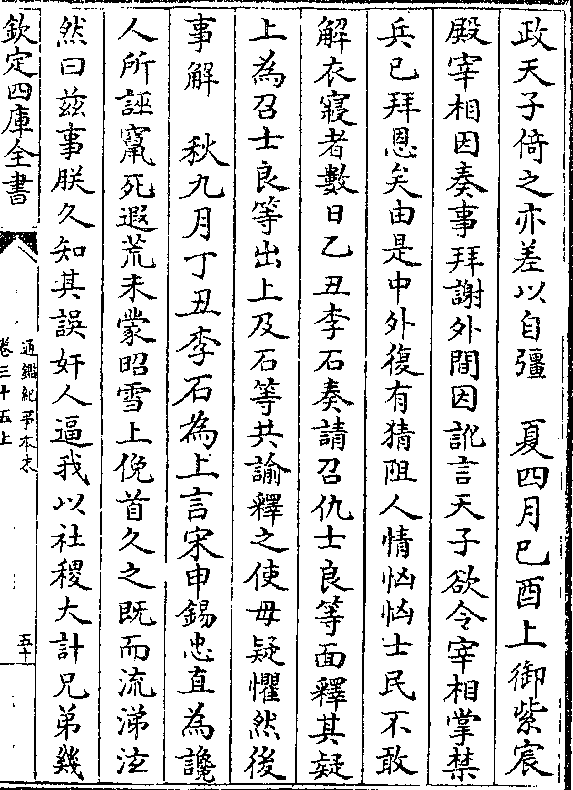 政天子倚之亦差以自彊　夏四月己酉上御紫宸
殿宰相因奏事拜謝外間因訛言天子欲令宰相掌禁
兵已拜恩矣由是中外復有猜阻人情恟恟士民不敢
解衣寢者數日乙丑李石奏請召仇士良等面釋其疑
上為召士良等出上及石等共諭釋之使毋疑懼然後
事解　秋九月丁丑李石為上言宋申錫忠直為讒
人所誣竄死遐荒未蒙昭雪上俛首久之既而流涕泫
然曰兹事朕久知其誤奸人逼我以社稷大計兄弟幾
欽定四庫全書
通鑑紀事本末
卷三十五上
五十